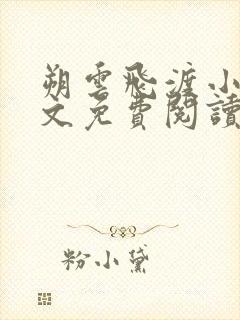 朔雲飛渡小
文免費閱讀
粉小黛